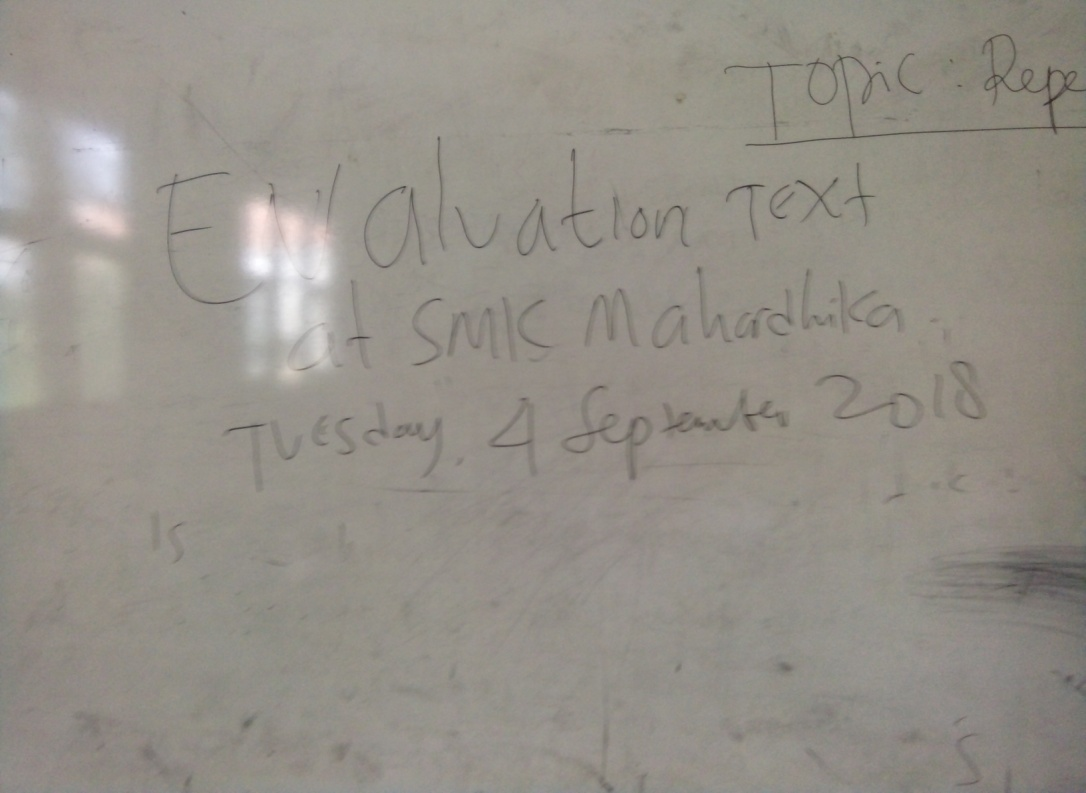 Topic : Repe
Evaluation Text
at SMK Mahardhika
Tuesday, 4 September 2018